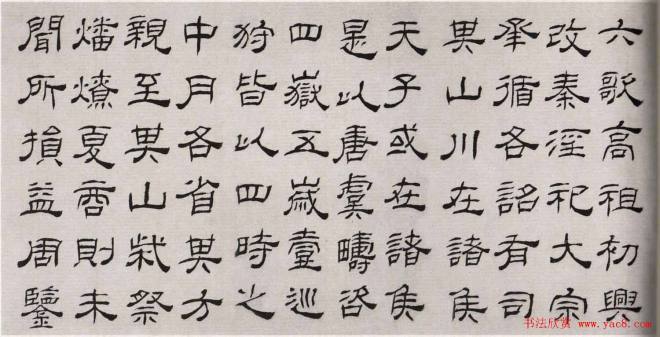 六歌高祖初興
改秦淫祀大宗
承循各詔有司
其山川在諸侯
天子或在諸侯
是以唐虞疇咨
四嶽五歲壹巡
狩皆以四時之
中月各省其方
親至其山柴祭
燔燎夏商則未
聞所損益周鑒
书法欣赏 www.yac8.com